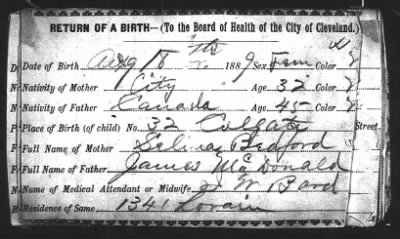 RETURN OF A BIRTH—(To the Board of Health of the City of Cleveland.)
Date of Birth Aug 18 th 1889 Sex Fem Color W
Nativity of Mother City Age 32 Color
Nativity of Father Canada Age 45 Color
Place of Birth (of child) No. 32 Colgate Street
Full Name of Mother Selina Bedford
Full Name of Father James McDonald
Name of Medical Attendant or Midwife W Bard
Residence of Same 1341 Lorain